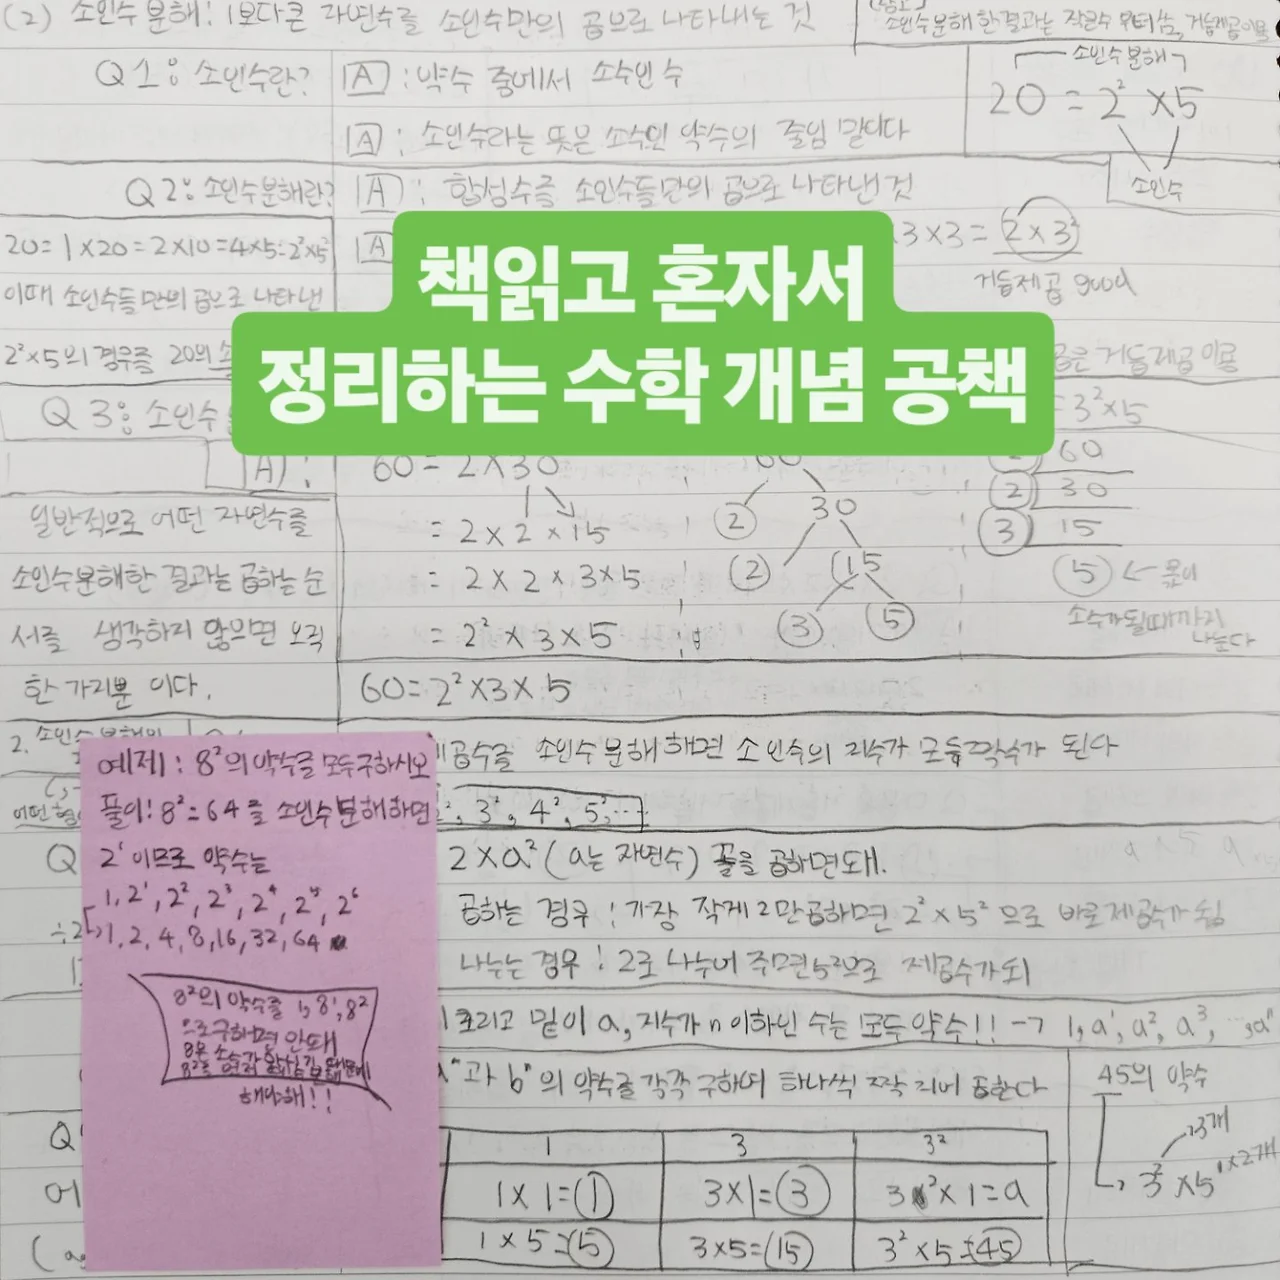 (2) 소인수 분해: 1보다 큰 자연수를 소인수만의 곱으로 나타내는 것
소인수분해 한 결과는 작은수 부터 씀, 거듭제곱 이용
Q1: 소인수란?
A : 약수 중에서 소수인 수
A : 소인수라는 뜻은 소수인 약수의 줄임 말이다
소인수 분해
20 = 2² × 5
소인수
Q2: 소인수분해란?
A : 합성수를 소인수들만의 곱으로 나타낸 것
20 = 1×20 = 2×10 = 4×5 = 2²×5
이때 소인수들만의 곱으로 나타낸
2²×5의 경우를 20의
A
3×3 = 2×3²
거듭제곱 good
책읽고 혼자서
정리하는 수학 개념 공책
거듭제곱 이용
= 3²×5
Q 3: 소인수
A :
일반적으로 어떤 자연수를
소인수분해한 결과는 곱하는 순
서를 생각하지 않으면 오직
한 가지뿐 이다.
60 = 2×30
= 2×2×15
= 2×2×3×5
= 2²×3×5
60 = 2²×3×5
2 30
2 15
3 5
60
2 30
3 15
5 ← 몫이
소수가 될때까지
나눈다
2. 소인수
제곱수를 소인수 분해 해면 소인수의 지수가 모두 짝수가 된다
3², 4², 5², …
Q
2×a² (a는 자연수) 꼴을 곱해면 돼.
곱하는 경우 : 가장 작게 2만곱하면 2²×5²으로 바로 제곱수가 됨
나누는 경우 : 2로 나누어 주면 5²으로 제곱수가 되
그리고 밑이 a, 지수가 n 이하인 수는 모두 약수!! → 1, a¹, a², a³, …, aⁿ
과 bⁿ의 약수를 각각 구하여 하나씩 짝 지어 곱한다
예제: 8²의 약수를 모두 구하시오
풀이: 8² = 64를 소인수 분해하면
이므로 약수는
1, 2¹, 2², 2³, 2⁴, 2⁵, 2⁶
1, 2, 4, 8, 16, 32, 64
8²의 약수를 1, 8¹, 8²
으로 구하면 안돼
해야해!!
1 3 3²
1×1=1 3×1=3 3²×1=9
1×5=5 3×5=15 3²×5=45
45의 약수
3개
3²×5¹ 2개